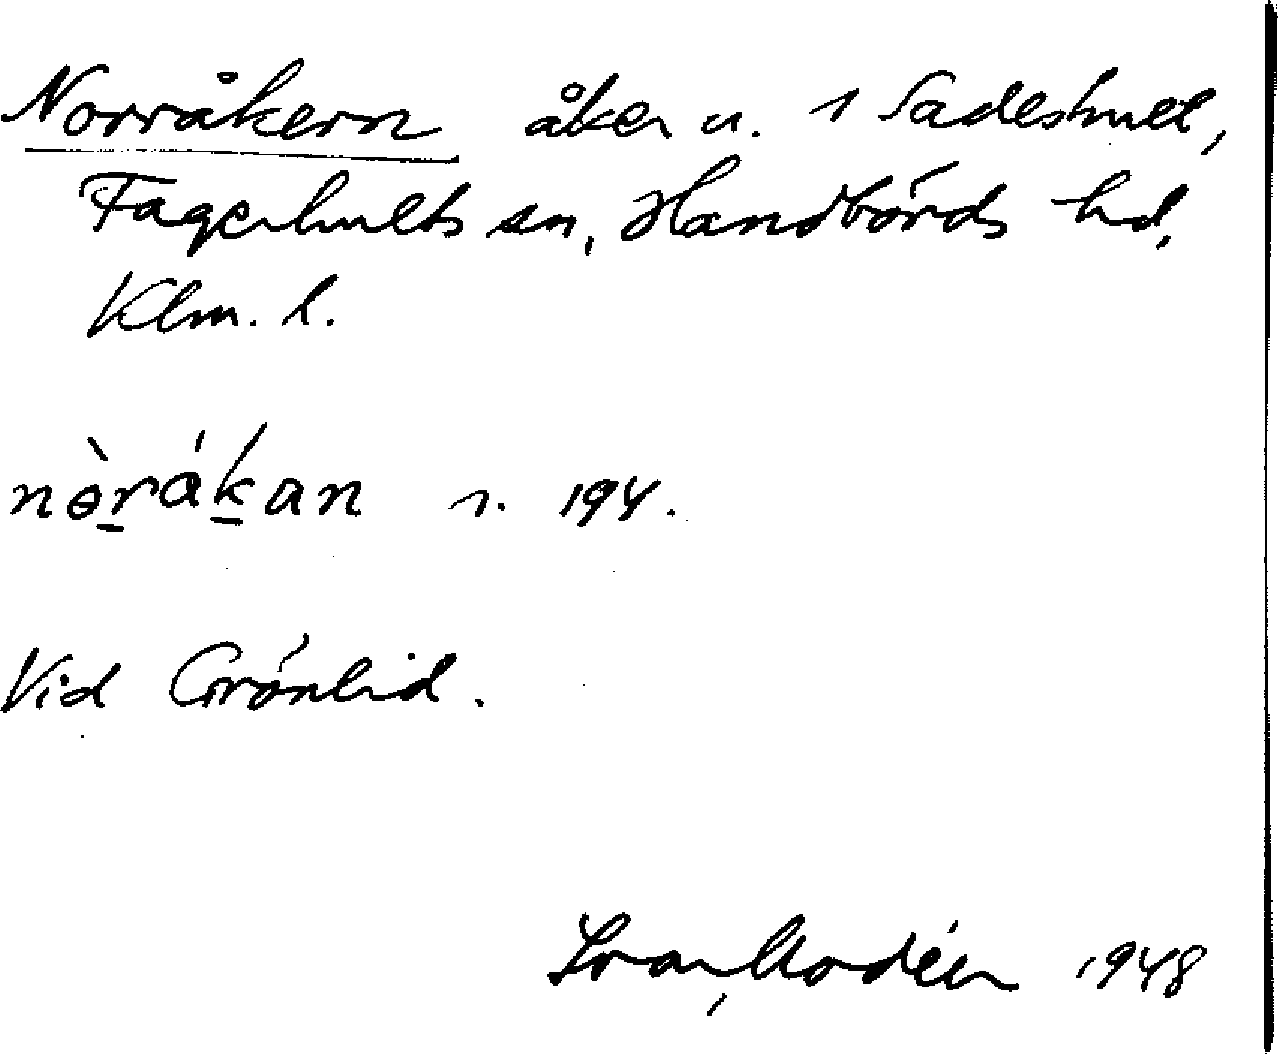 Norråkern åker u. 1 Sadeshult,
Fagerhults sn, Handbörds hd,
Klm. l.
nɵ̀rákan s. 194.
Vid Grönlid.
Ivar Modéer 1948